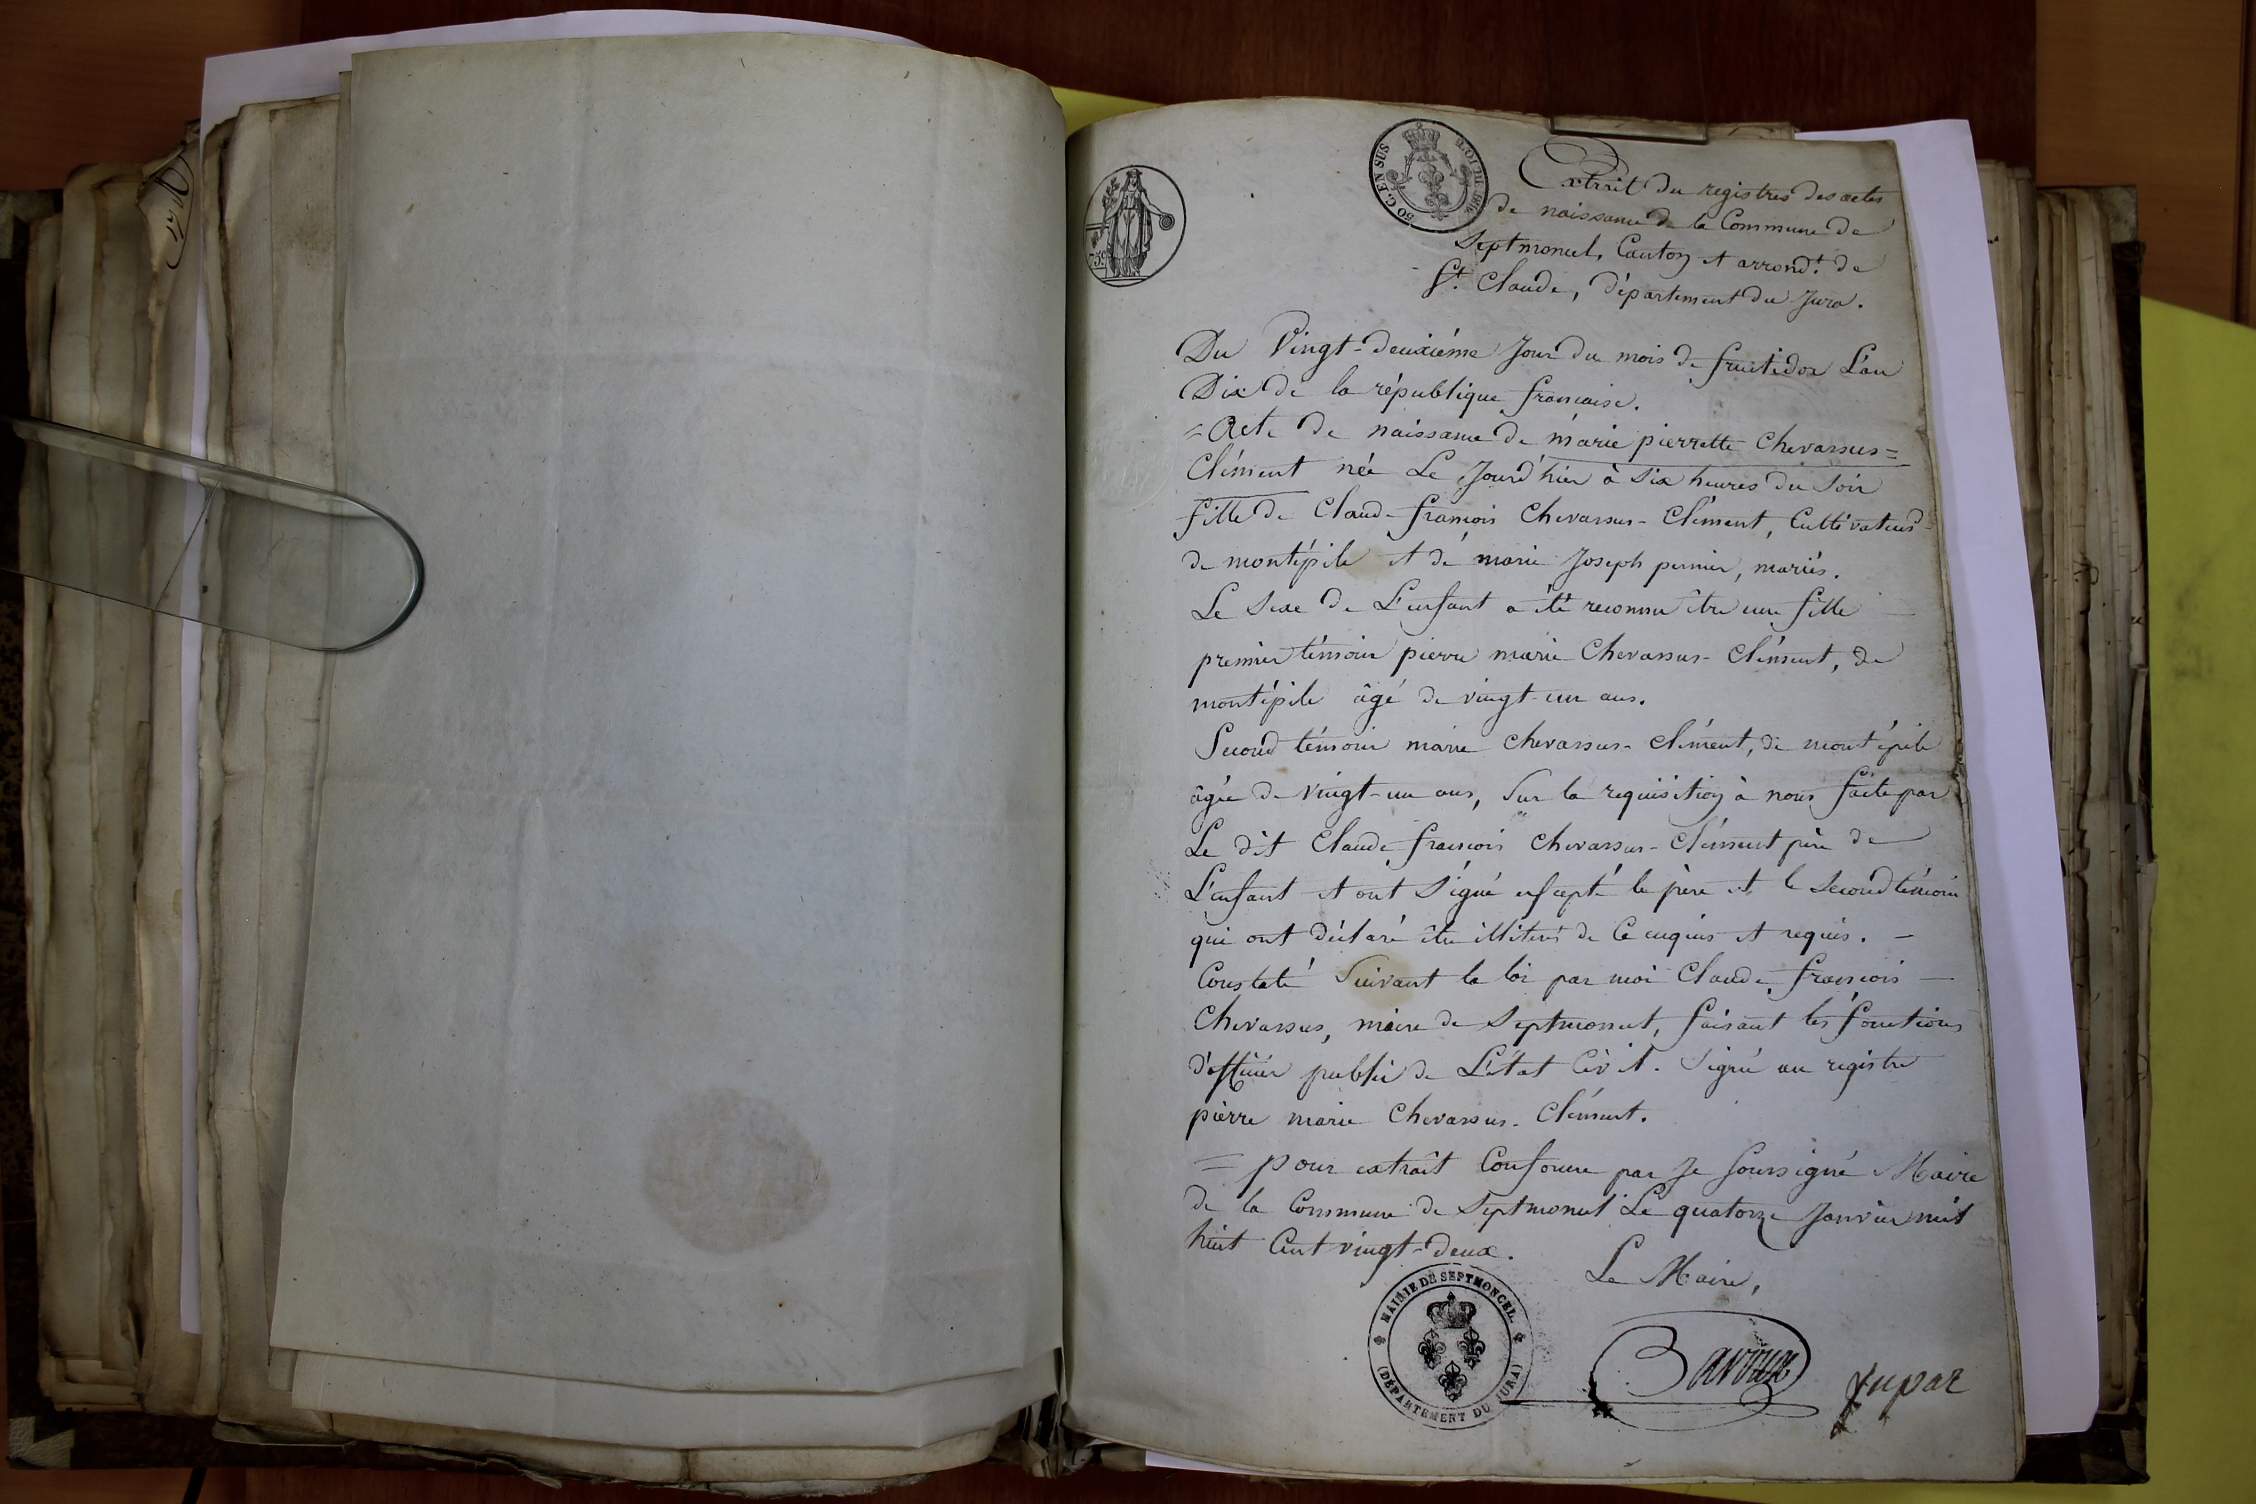 50 C. EN SUS
LOI DE 1816
75c
Extrait du registres des actes
de naissance de la Commune de
Septmoncel, Canton et arrondt. de
St. Claude, département du Jura.
Du Vingt-deuxiéme Jour du mois de fructidor L'an
Dix de la république francaise.
= Acte de naissance de marie pierrette Chevassus=
Clément née Le Jourd'hier à Six heures du Soir
fille de Claude-francois Chevassus-Clément, Cultivateur
de montépile et de marie Joseph permier, mariés.
Le Sexe de L'enfant a été reconnu être une fille
premier témoin pierre marie Chevassus-Clément, de
montépile âgé de vingt-un ans.
Second témoin marie Chevassus-Clément, de montépile
âgée de vingt-un ans, Sur la requisition à nous faite par
Le dit Claude francois Chevassus-Clément père de
L'enfant et ont Signé excepté le père et le Second témoin
qui ont déclaré être illiterés de Ce enquis et requis. -
Constaté Suivant la loi par moi Claude francois -
Chevassus, maire de Septmoncel, faisant les fonctions
d'officier public de L'état Civil. Signé au registre
pierre marie Chevassus-Clément.
= pour extrait Conforme par Je Soussigné Maire
de la Commune de Septmoncel Le quatorze Janvier mil
huit Cent vingt-deux.
Le Maire,
MAIRIE DE SEPTMONCEL
(DÉPARTEMENT DU JURA)